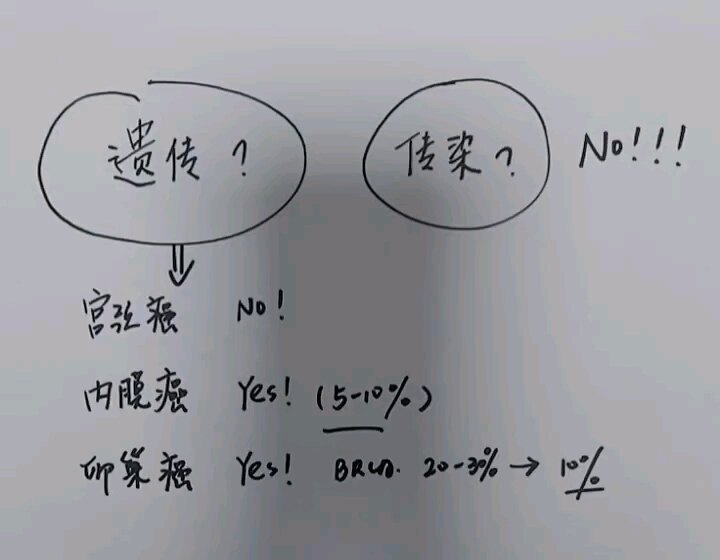 遗传? 传染? No!!!
宫颈癌 No!
内膜癌 Yes! (5-10%)
卵巢癌 Yes! BRCA. 20-30% → 10%